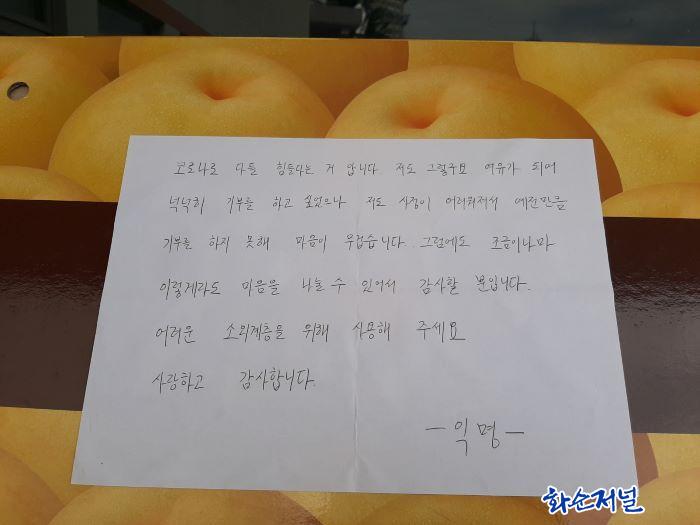 코로나로 다들 힘들다는 거 압니다. 저도 그렇구요 여유가 되어
넉넉히 기부를 하고 싶었으나 저도 사정이 어려워져서 예전만큼
기부를 하지 못해 마음이 무겁습니다. 그럼에도 조금이나마
이렇게라도 마음을 나눌 수 있어서 감사할 뿐입니다.
어려운 소외계층을 위해 사용해 주세요
사랑하고 감사합니다.
- 익명 -
화순저널